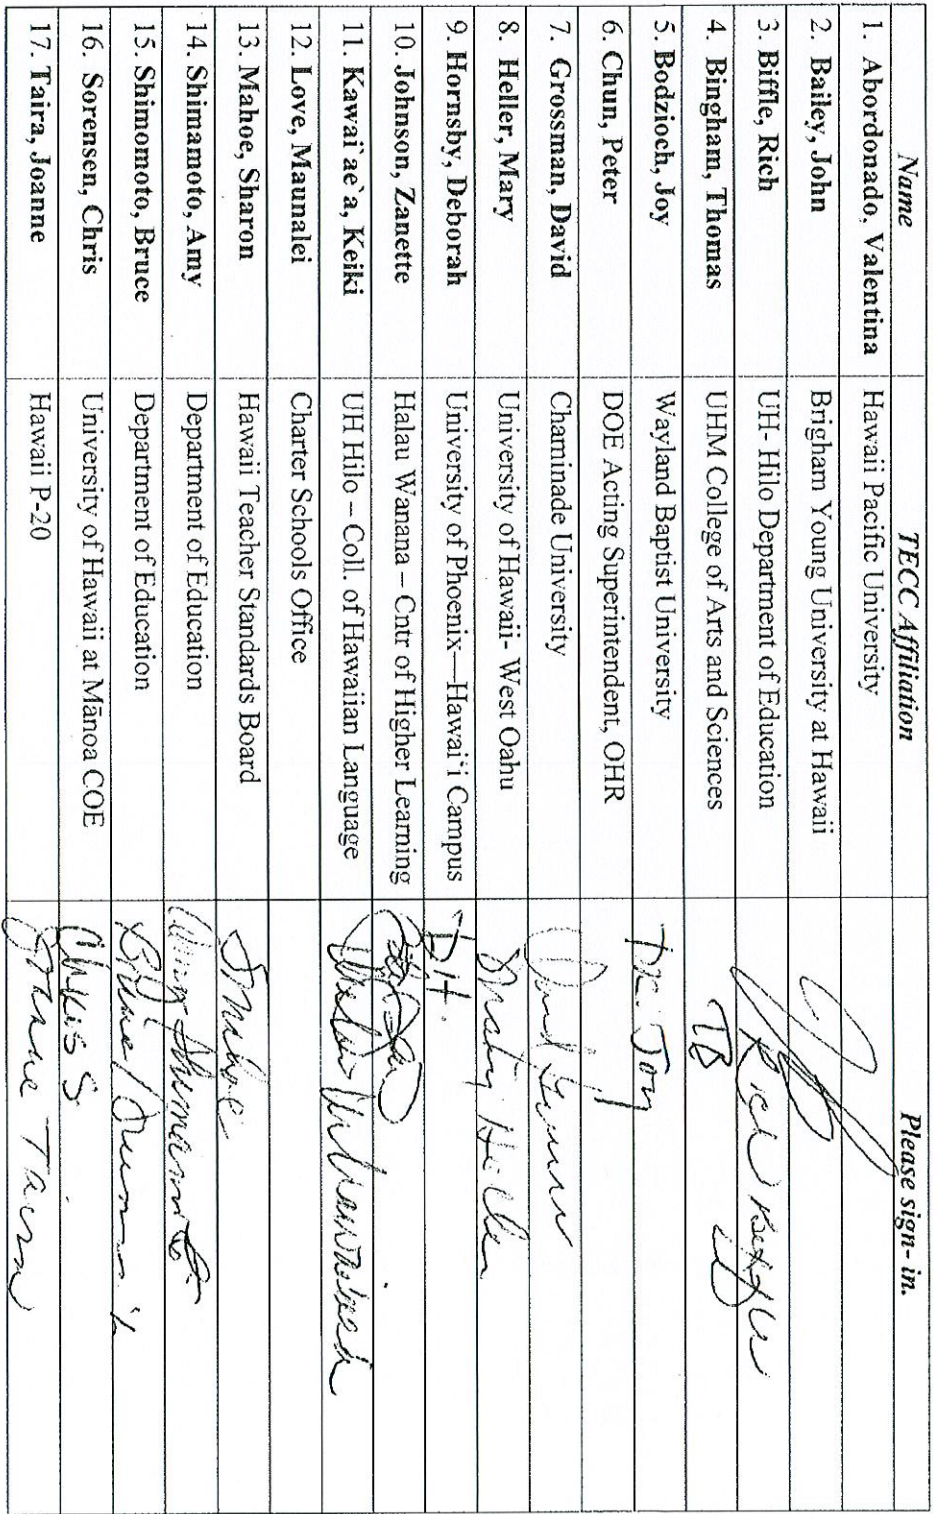 Name TECC Affiliation Please sign- in.
1. Abordonado, Valentina Hawaii Pacific University
2. Bailey, John Brigham Young University at Hawaii
3. Biffle, Rich UH- Hilo Department of Education Rich Biffle
4. Bingham, Thomas UHM College of Arts and Sciences TB
5. Bodzioch, Joy Wayland Baptist University Dr. Joy
6. Chun, Peter DOE Acting Superintendent, OHR
7. Grossman, David Chaminade University
8. Heller, Mary University of Hawaii- West Oahu Mary Heller
9. Hornsby, Deborah University of Phoenix—Hawai`i Campus DH.
10. Johnson, Zanette Halau Wanana – Cntr of Higher Learning
11. Kawai`ae`a, Keiki UH Hilo – Coll. of Hawaiian Language
12. Love, Maunalei Charter Schools Office
13. Mahoe, Sharon Hawaii Teacher Standards Board SMahoe
14. Shimamoto, Amy Department of Education Amy Shimamoto
15. Shimomoto, Bruce Department of Education Bruce
16. Sorensen, Chris University of Hawaii at Mānoa COE Chris S.
17. Taira, Joanne Hawaii P-20 Joanne Taira